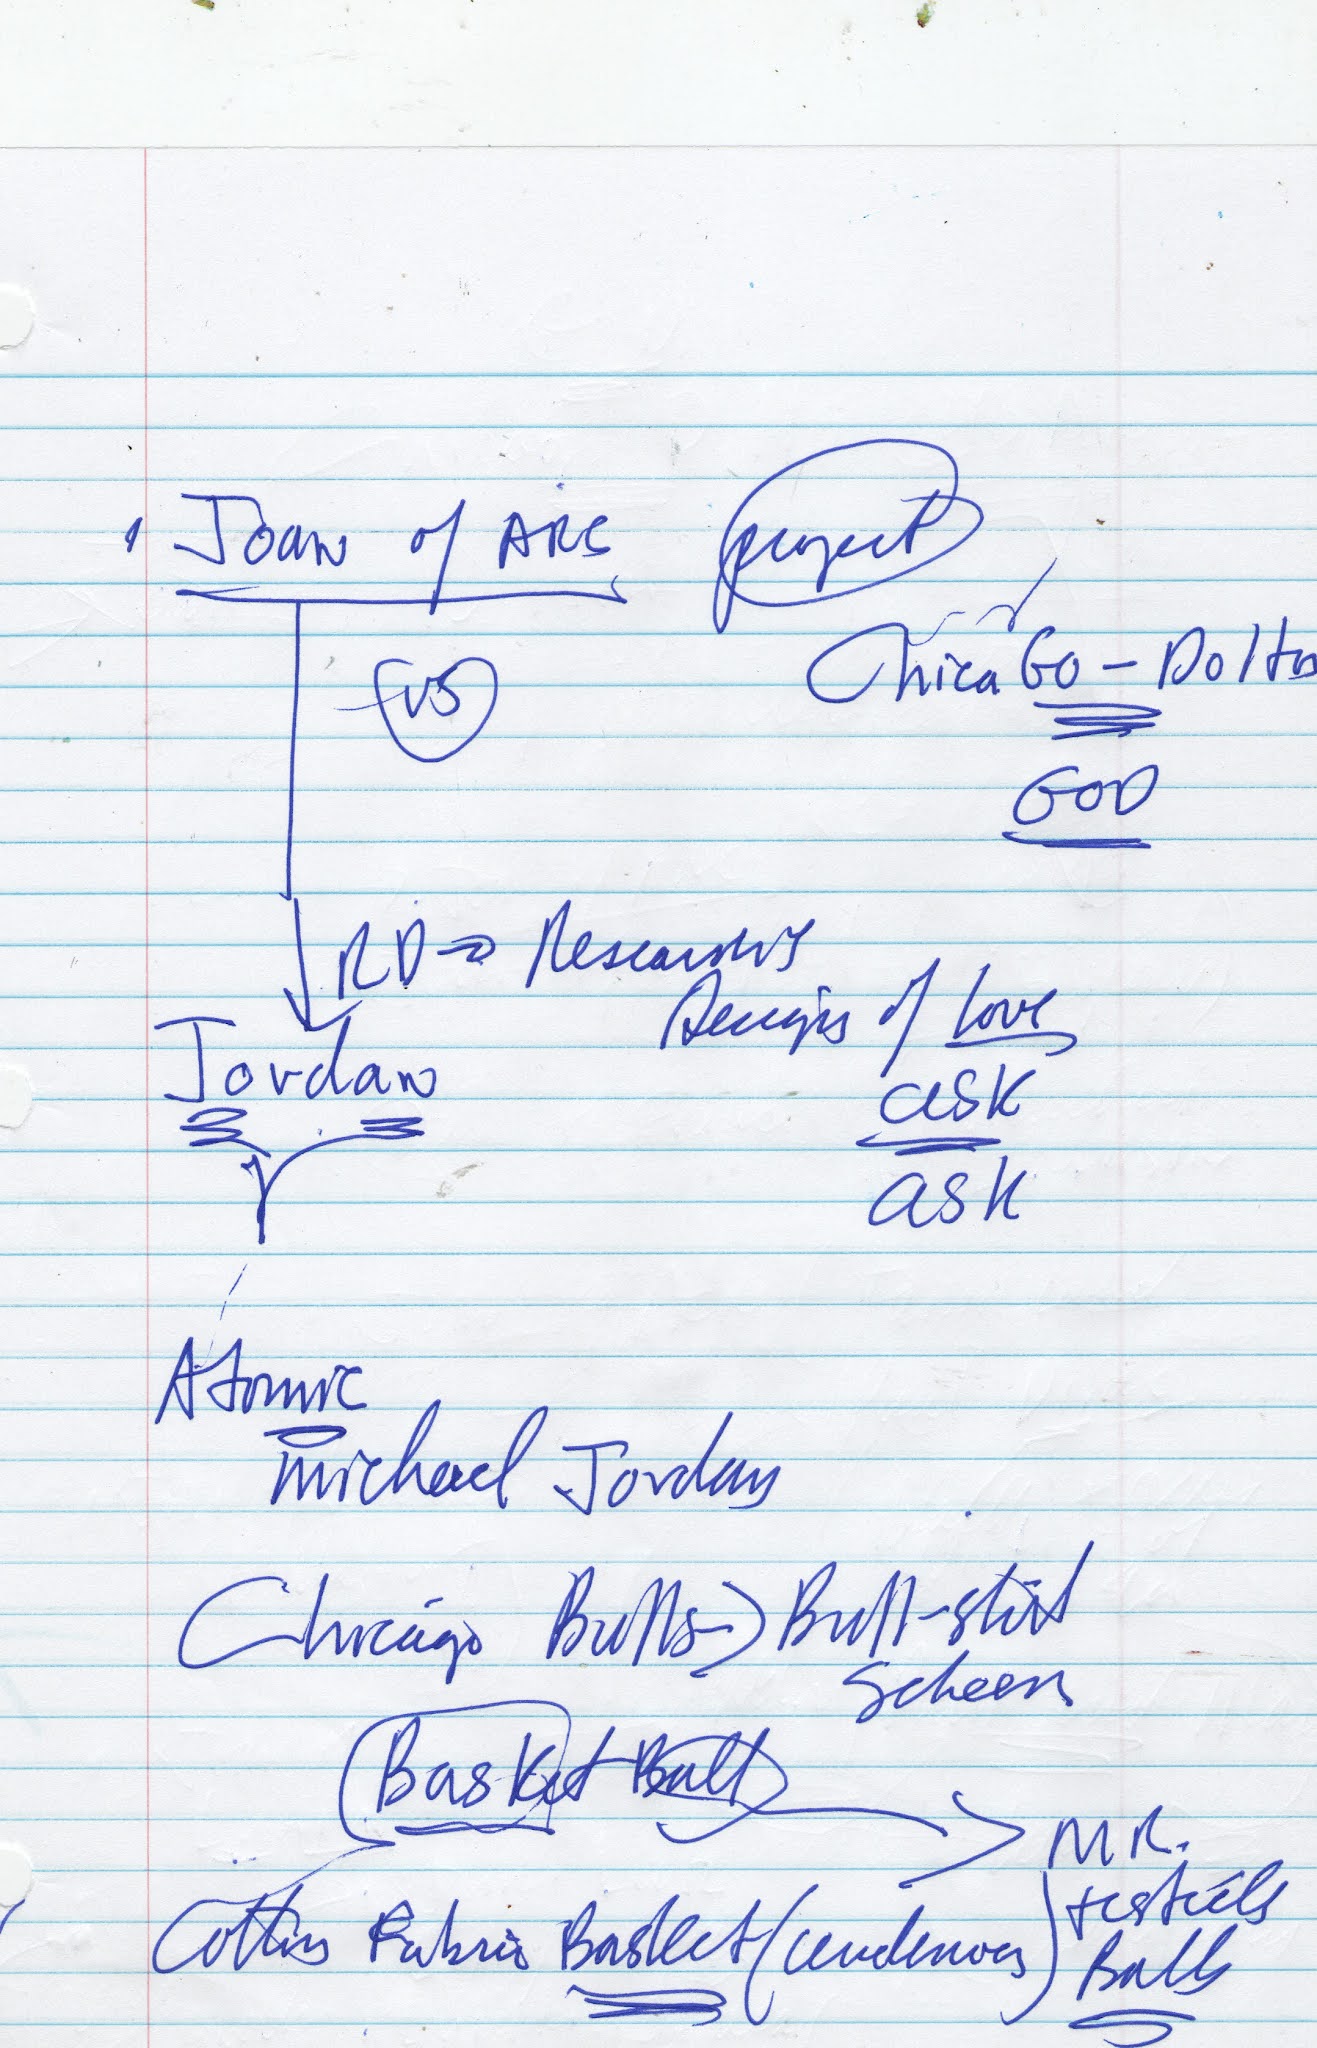 Joan of ARC project
ChicaGO - Dolton
VS
GOD
RD → Research
Designs of Love
Jordan
ask
ask
Atomic
Michael Jordan
Chicago Bulls → Bull-shit
Basket Ball
MR.
Cotton Fabric Basket
Balls